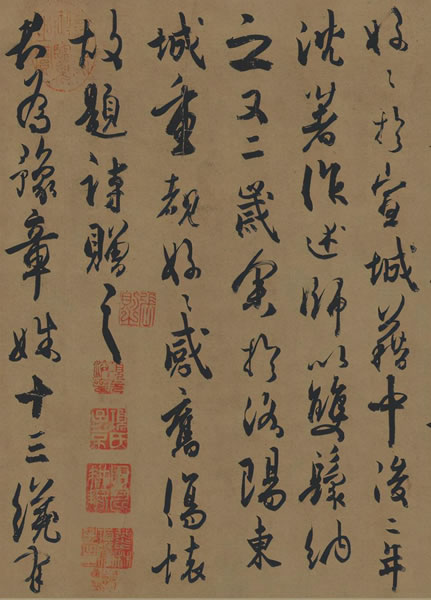 好〻於宣城籍中後二年
沈著作述師以雙鬟納
之又二歲余於洛陽東
城重覩好〻感舊傷懷
故題詩贈之
君為豫章姝十三纔有